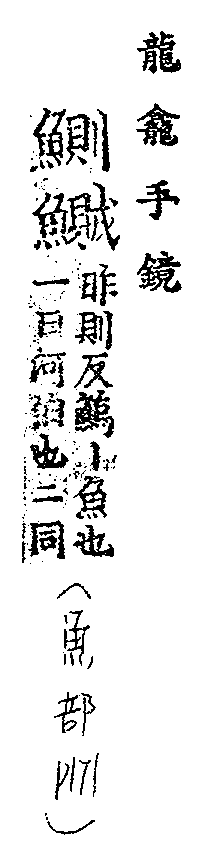 龍龕手鏡
鰂鱡
昨則反小魚也
一曰河伯也二同
（魚部 P171）